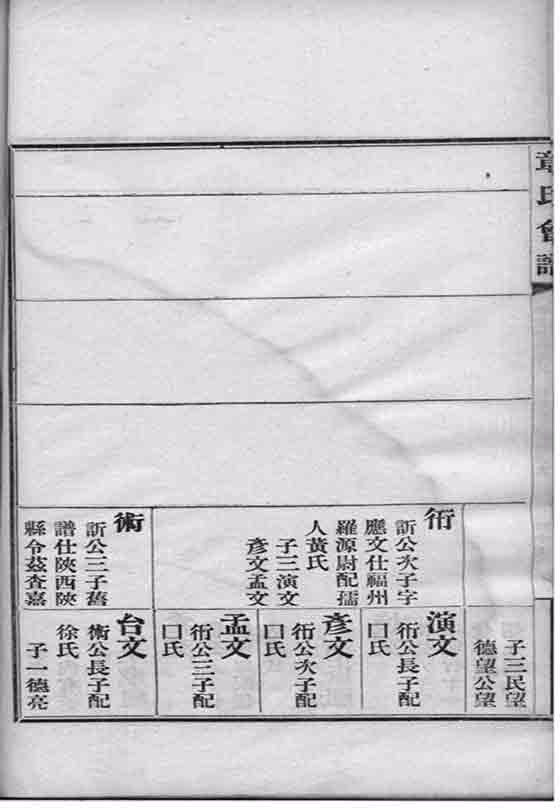 章氏會譜
衎
訢公次子字
應文仕福州
羅源尉配孺
人黃氏
子三演文
彥文孟文
術
訢公三子舊
譜仕陝西陝
縣令茲查嘉
子三民望
德望公望
演文
衎公長子配
囗氏
彥文
衎公次子配
囗氏
孟文
衎公三子配
囗氏
台文
術公長子配
徐氏
子一德亮